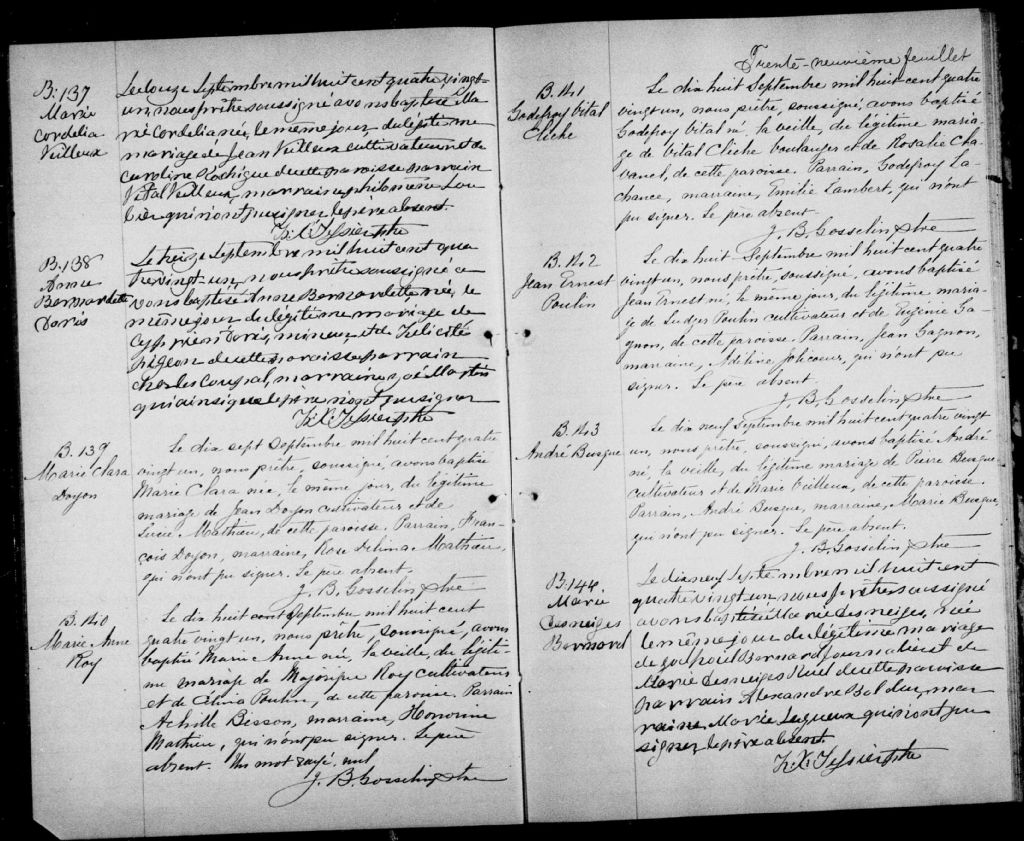 B. 137
Marie
Cordelia
Veilleux
Le douze Septembre mil huit cent quatre vingt-
un, nous prêtre soussigné avons baptisé Ma
rie Cordelia née, le même jour du légitime
mariage de Jean Veilleux cultivateur et de
Caroline Rodrigue de cette paroisse parrain
Vital Veilleux, marraine philomène Lou
bier qui n'ont pu signer le père absent.
F. X. Tessier ptre
B. 138
Anne
Bernardette
Doris
Le treize Septembre mil huit cent qua
tre vingt-un, nous prêtre soussigné a
vons baptisé Anne Bernardette née, le
même jour du légitime mariage de
Cyprien Doris, mineur et de Félicité
Pigeon de cette paroisse parrain
Charles Coupal, marraine
qui ainsi que le père n'ont pu signer
F. X. Tessier ptre
B. 139
Marie Clara
Doyon
Le dix sept Septembre mil huit cent quatre
vingt un, nous prêtre, soussigné, avons baptisé
Marie Clara née, le même jour, du légitime
mariage de Jean Doyon cultivateur et de
Lucie Mathieu, de cette paroisse. Parrain, Fran-
çois Doyon, marraine, Rose Delina Mathieu,
qui n'ont pu signer. Le père absent.
J. B. Gosselin Ptre
B. 140
Marie Anne
Roy
Le dix huit cent Septembre mil huit cent
quatre vingt un, nous prêtre, soussigné, avons
baptisé Marie Anne née, la veille, du légiti-
me mariage de Majorique Roy cultivateur
et de Célina Poulin, de cette paroisse. Parrain
Achille Bisson, marraine, Honorine
Mathieu, qui n'ont pu signer. Le père
absent. Un mot rayé, nul
J. B. Gosselin Ptre
Trente-neuvième feuillet
B. 141
Godefroy Vital
Cliche
Le dix huit Septembre mil huit cent quatre
vingt un, nous prêtre, soussigné, avons baptisé
Godefroy Vital né, la veille, du légitime maria-
ge de Vital Cliche boulanger et de Rosalie Cha-
banel, de cette paroisse. Parrain, Godefroy La-
chance, marraine, Emilie Lambert, qui n'ont
pu signer. Le père absent.
J. B. Gosselin Ptre
B. 142
Jean Ernest
Poulin
Le dix huit Septembre mil huit cent quatre
vingt un, nous prêtre, soussigné, avons baptisé
Jean Ernest né, le même jour, du légitime maria-
ge de Ludger Poulin cultivateur et de Eugénie Ga-
gnon, de cette paroisse. Parrain, Jean Gagnon,
marraine, Adeline Jolicoeur, qui n'ont pu
signer. Le père absent.
J. B. Gosselin Ptre
B. 143
André Busque
Le dix neuf Septembre mil huit cent quatre vingt
un, nous prêtre, soussigné, avons baptisé André
né, la veille, du légitime mariage de Pierre Busque
cultivateur et de Marie Veilleux, de cette paroisse.
Parrain, André Busque, marraine, Marie Busque,
qui n'ont pu signer. Le père absent.
J. B. Gosselin Ptre
B. 144
Marie
Desneiges
Bernard
Le dix neuf Septembre mil huit cent
quatre vingt un nous prêtre soussigné
avons baptisé Marie Desneiges, née
le même jour du légitime mariage
de Bernard journalier et de
Marie Desneiges de cette paroisse
parrain Alexandre Bolduc, mar
raine Marie qui n'ont pu
signer le père absent
F. X. Tessier ptre